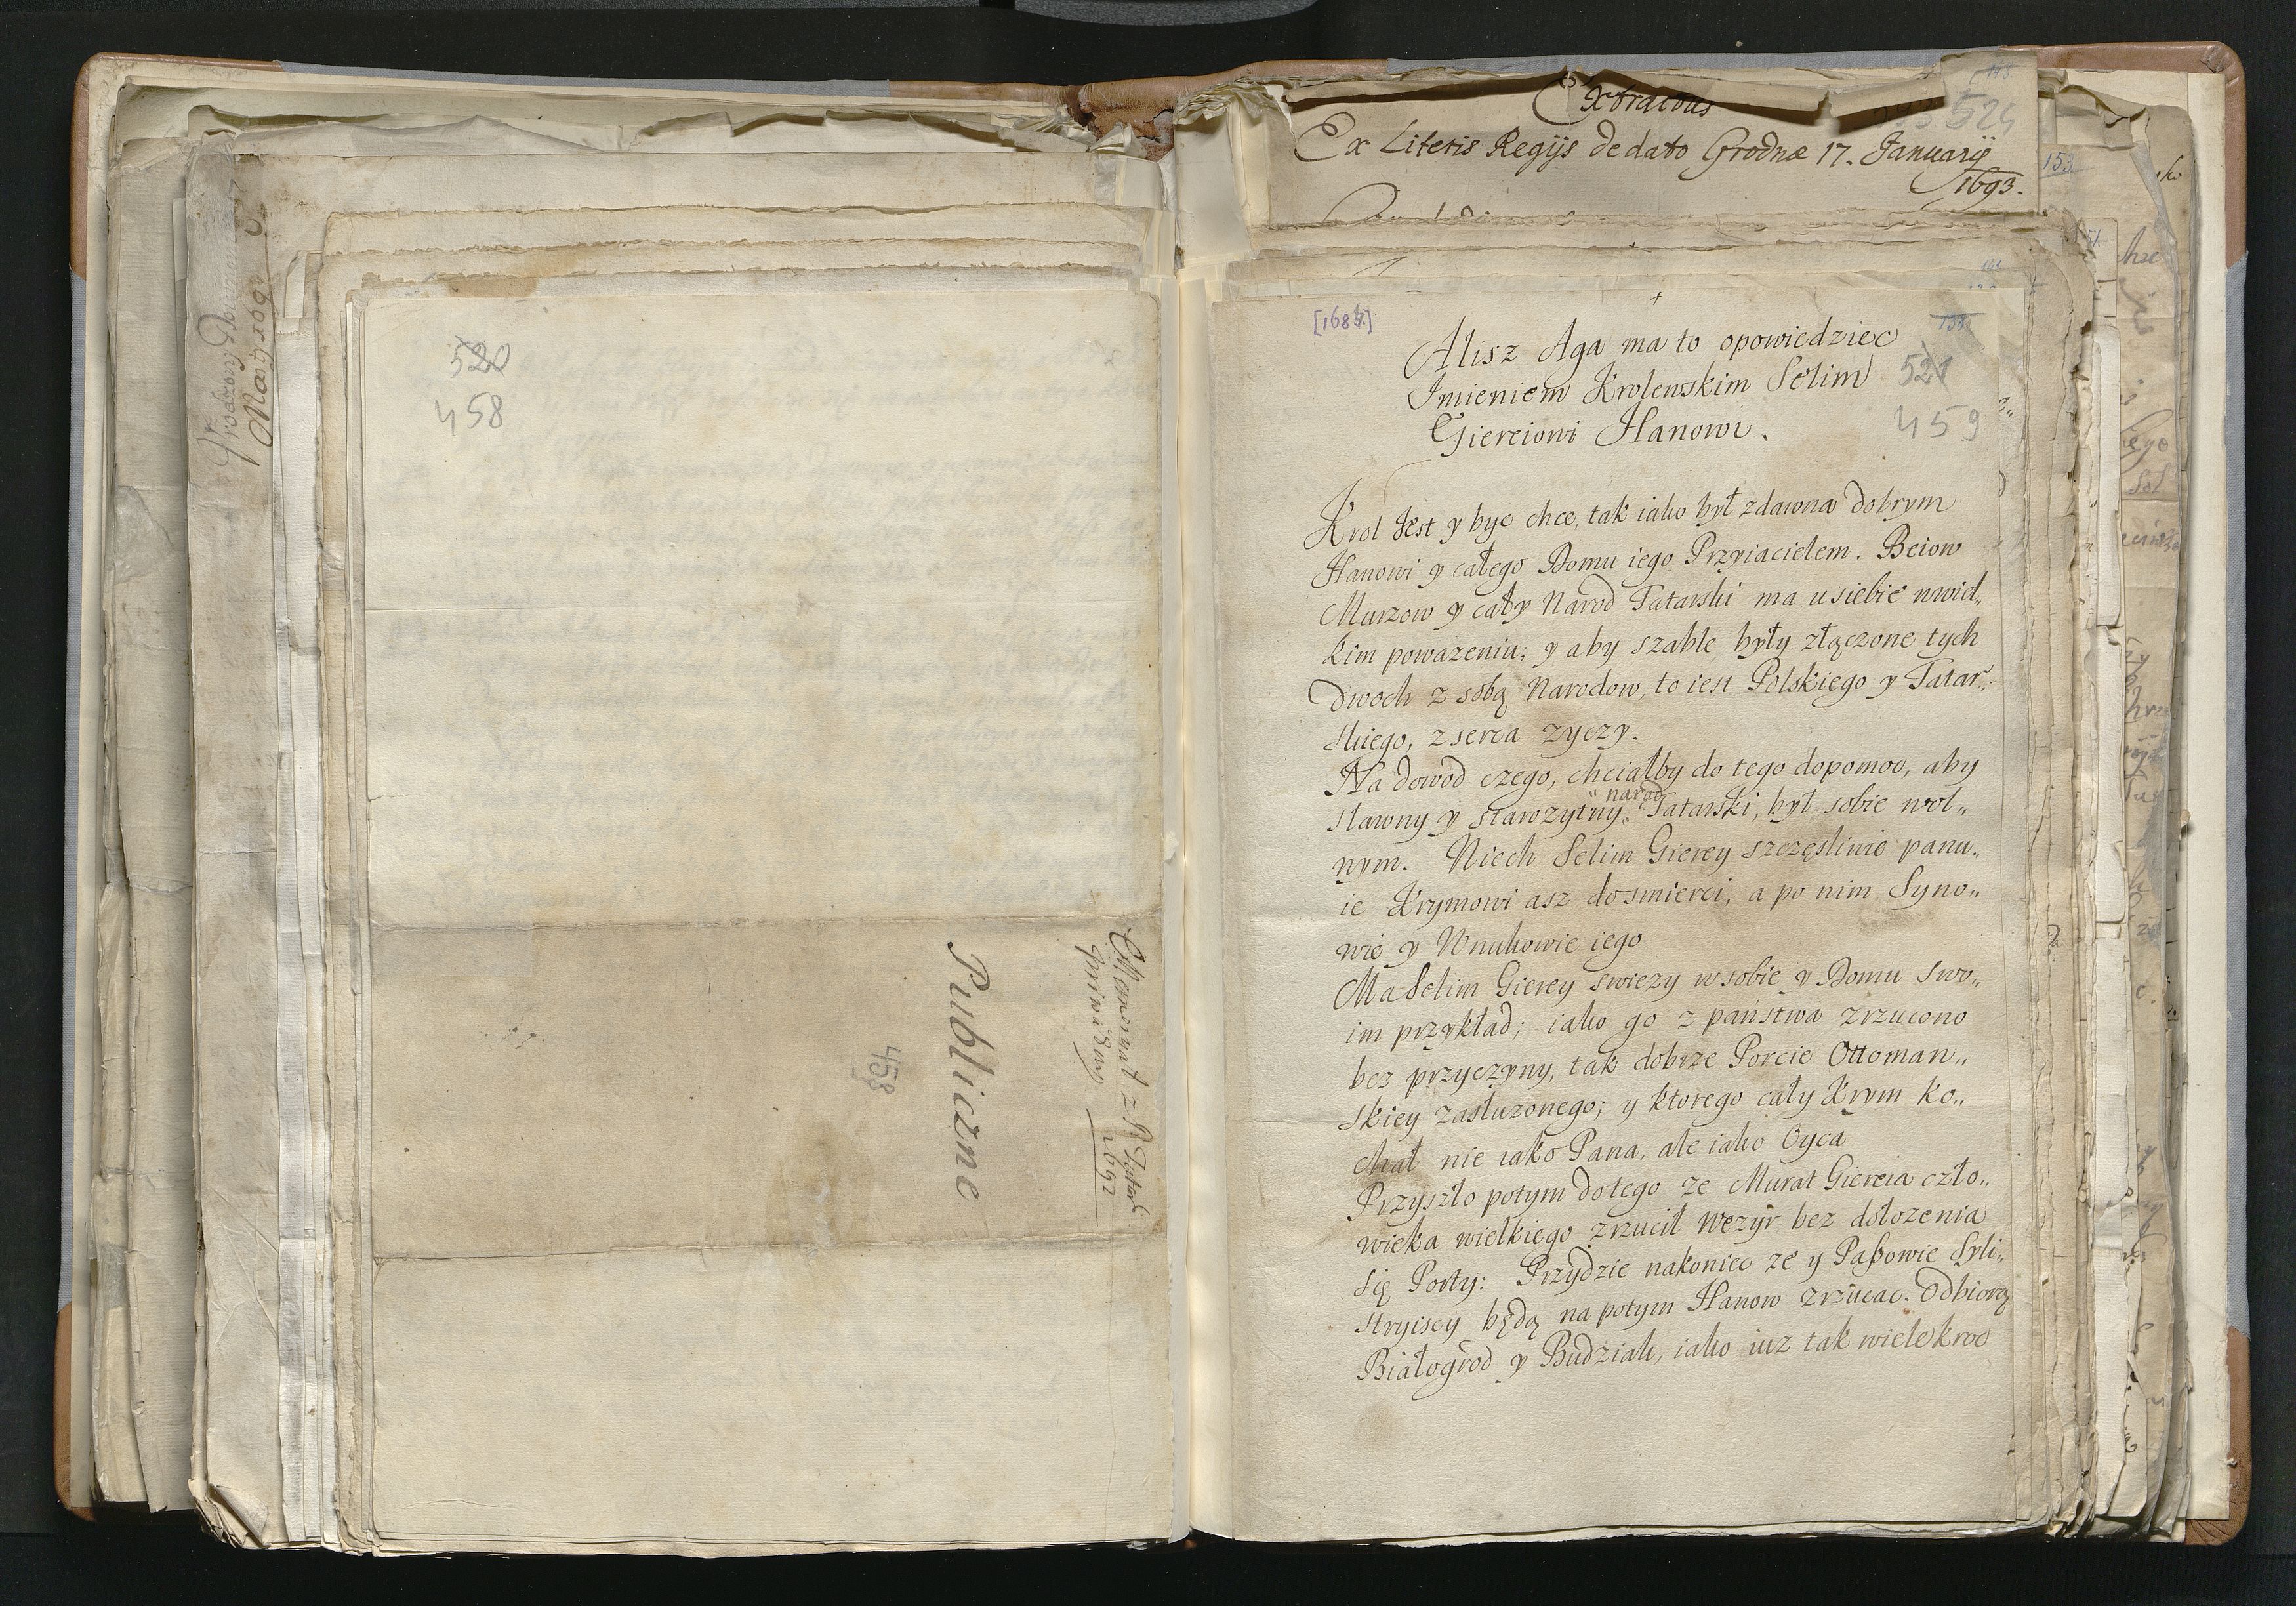 520
458
Memoryał z P. Tatar
priwatny 1692
Publiczne
458
Extractus
524
Ex Literis Regijs de dato Grodnæ 17. Januarij
1693.
153
[1684]
138
Alisz Aga ma to opowiedziec
Imieniem Krolewskim Selim
521
Giereiowi Hanowi.
459
Krol Jest y byc chce, tak iako był zdawna dobrym
Hanowi y całego Domu iego Przyiacielem. Beiow
Murzow y cały Narod Tatarski ma u siebie wwiel„
kim powazeniu; y aby szable były złączone tych
dwoch z sobą Narodow, to iest Polskiego y Tatar„
skiego, z serca zyczy.
Na dowod czego, chciałby do tego dopomoc, aby
sławny y starozytny narod Tatarski, był sobie wol„
nym. Niech Selim Gierey szczęsliwie panu„
ie Krymowi asz do smierci, a po nim Syno„
wie y Wnukowie iego
Ma Selim Gierey swiezy w sobie y Domu swo„
im przykład; iako go z państwa zrzucono
bez przyczyny, tak dobrze Porcie Ottoman„
skiey zasłuzonego; y ktorego cały Krym ko„
chał nie iako Pana, ale iako Oyca
Przyszło potym do tego ze Murat Giereia czło„
wieka wielkiego zrzucił wezyr bez dołozenia
się Porty: Przydzie nakoniec ze y Paszowie Syli„
stryiscy będą na potym Hanow zrzucac. Odbiorą
Białogrod y Budziak, iako iuz tak wielekroc